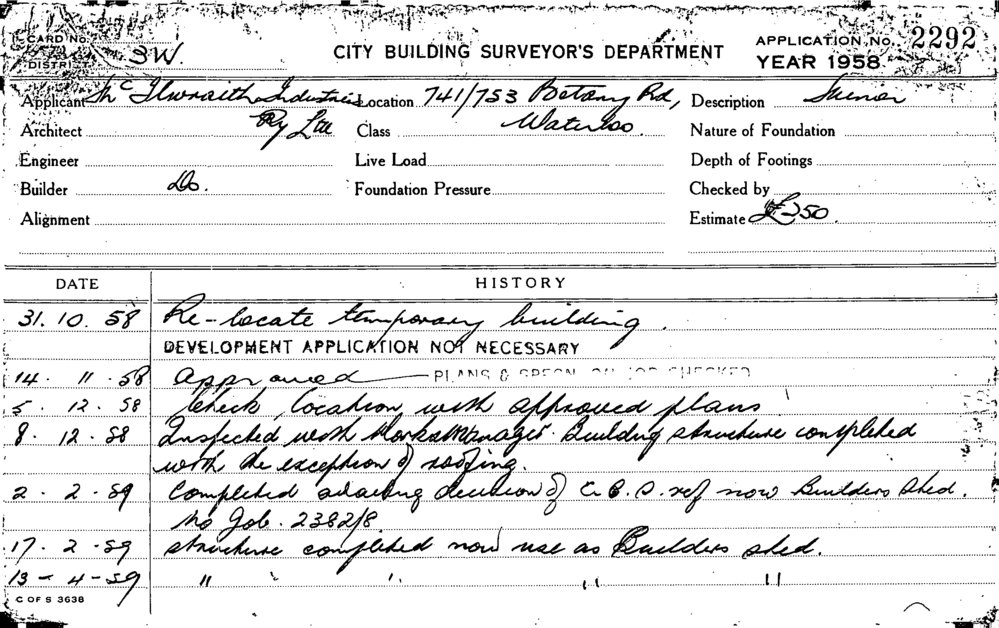 CARD No.
DISTRICT S.W.
CITY BUILDING SURVEYOR'S DEPARTMENT
APPLICATION No. 2292
YEAR 1958
Applicant Mc Ilwraith Industries Pty Ltd
Location 741/753 Botany Rd, Waterloo.
Description
Architect
Class
Nature of Foundation
Engineer
Live Load
Depth of Footings
Builder Do.
Foundation Pressure
Checked by
Alignment
Estimate £250.
DATE HISTORY
31. 10. 58 Re-locate temporary building.
DEVELOPMENT APPLICATION NOT NECESSARY
14. 11. 58 Approved PLANS & SPECN. ON JOB CHECKED
5. 12. 58 Check location with approved plans
8. 12. 58 Inspected with Works Manager. Building structure completed
with the exception of roofing.
2. 2. 59 Completed awaiting decision of C.B.S. ref now Builders shed.
no Job. 2382/8.
17. 2. 59 structure completed now use as Builders shed.
13-4-59 " " " " "
C OF S 3638